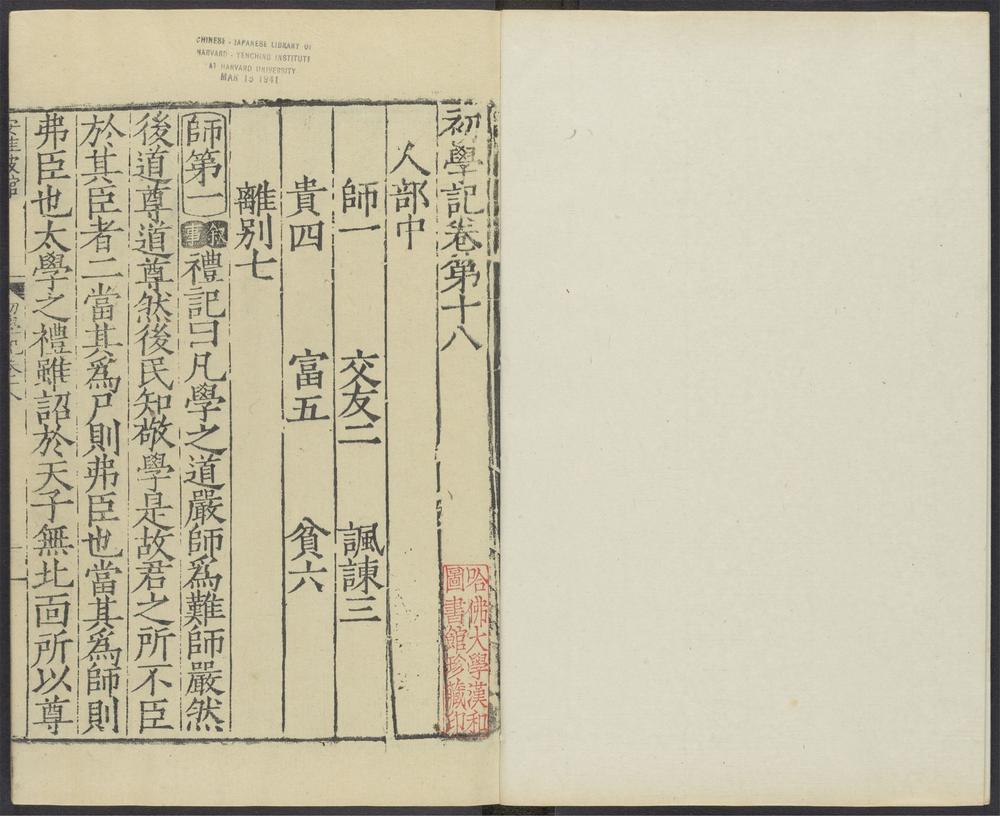 CHINESE - JAPANESE LIBRARY OF
HARVARD - YENCHING INSTITUTE
AT HARVARD UNIVERSITY
MAR 15 1941
初學記卷第十八
人部中
師一 交友二 諷諫三
貴四 富五 貧六
離别七
師第一 叙事 禮記曰凡學之道嚴師爲難師嚴然
後道尊道尊然後民知敬學是故君之所不臣
於其臣者二當其爲尸則弗臣也當其爲師則
弗臣也太學之禮雖詔於天子無北面所以尊
哈佛大學漢和
圖書館珍藏印